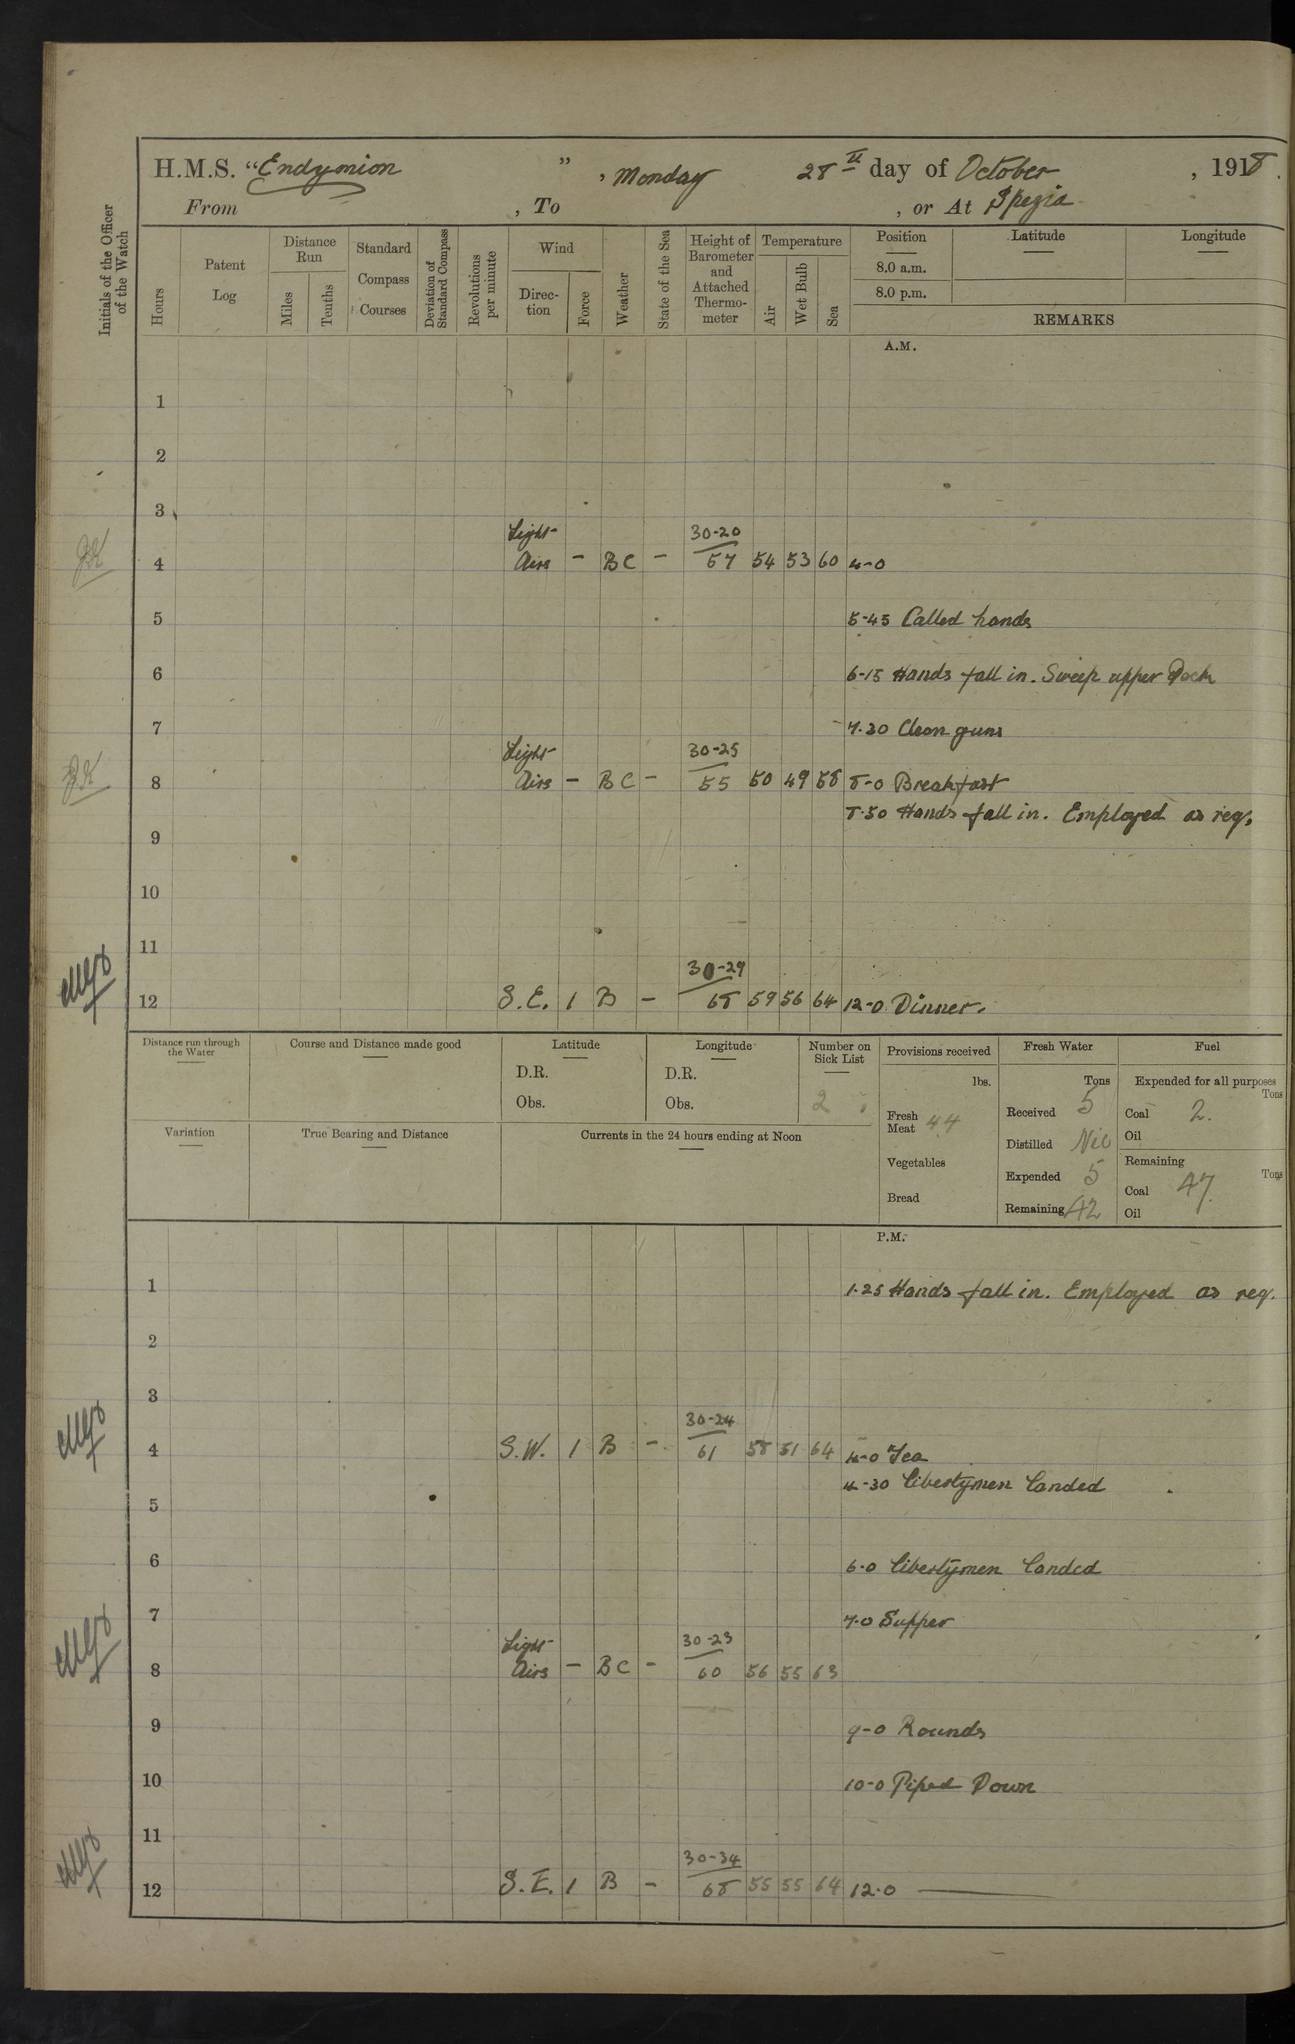 H.M.S. "Endymion", Monday 28th day of October, 1918.
From , To , or At Spezia
Initials of the Officer of the Watch
Hours
Patent Log
Distance Run
Miles
Tenths
Standard Compass Courses
Deviation of Standard Compass
Revolutions per minute
Wind
Direc-tion
Force
Weather
State of the Sea
Height of Barometer and Attached Thermo-meter
Temperature
Air
Wet Bulb
Sea
Position
8.0 a.m.
8.0 p.m.
Latitude
Longitude
REMARKS
A.M.
1
2
3
Light 30-20
4 Airs - BC - 57 54 53 60 4-0
5 5-45 Called hands
6 6-15 Hands fall in. Sweep upper Deck
7 7.30 Clean guns
Light 30-25
8 Airs - BC - 55 50 49 58 8-0 Breakfast
8.50 Hands fall in. Employed as req.
9
10
11
30-29
12 S.E. 1 B - 68 59 56 64 12-0 Dinner.
Distance run through the Water
Course and Distance made good
Latitude
D.R.
Obs.
Longitude
D.R.
Obs.
Number on Sick List
2
Provisions received
lbs.
Fresh Meat 44
Vegetables
Bread
Fresh Water
Tons
Received 5
Distilled Nil
Expended 5
Remaining 42
Fuel
Expended for all purposes
Tons
Coal 2.
Oil
Remaining
Tons
Coal 47
Oil
Variation
True Bearing and Distance
Currents in the 24 hours ending at Noon
P.M.
1 1.25 Hands fall in. Employed as req.
2
3
30-24
4 S.W. 1 B - 61 58 51 64 4-0 Tea
4-30 Libertymen landed
5
6 6.0 Libertymen landed
7 7.0 Supper
Light 30-23
8 Airs - BC - 60 56 55 63
9 9-0 Rounds
10 10-0 Piped Down
11
30-34
12 S.E. 1 B - 68 55 55 64 12.0